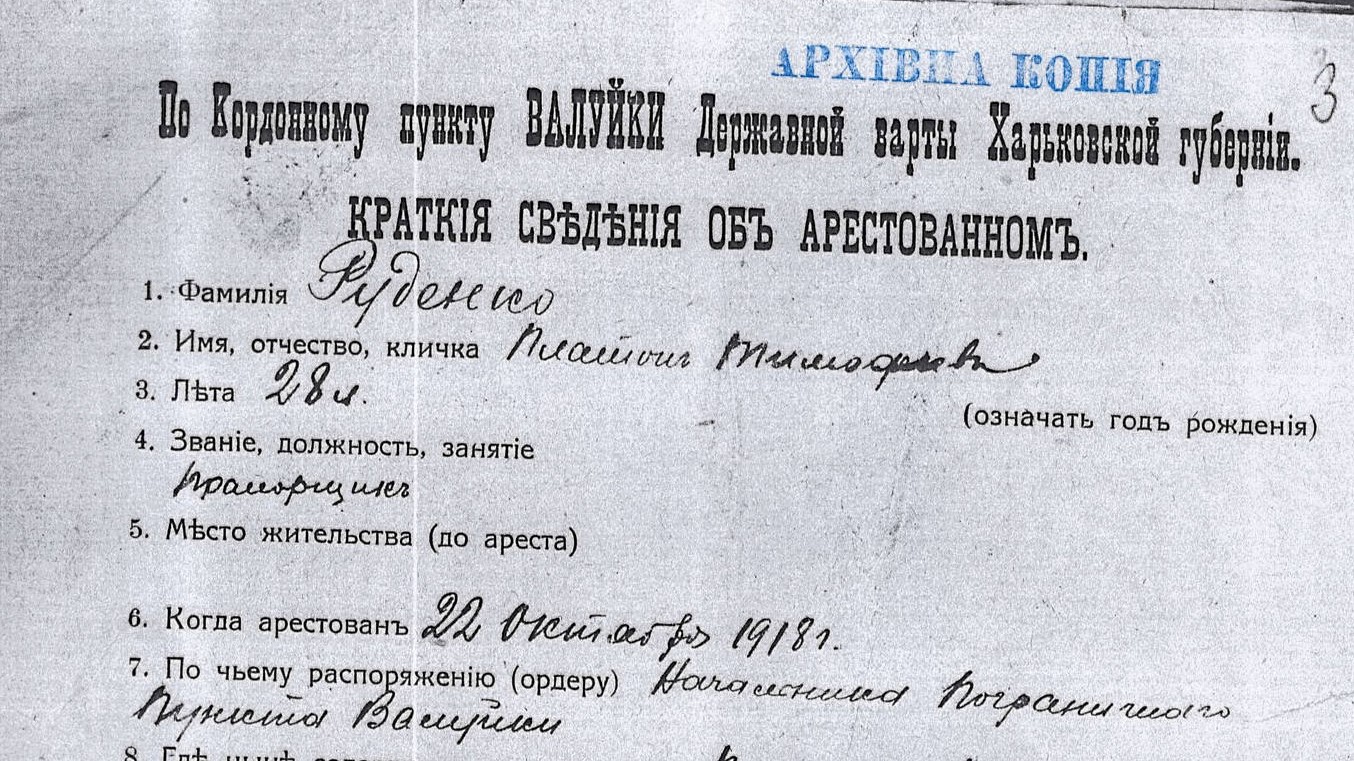 АРХІВНА КОПІЯ
3
По Кордонному пункту ВАЛУЙКИ Державной варты Харьковской губерніи.
КРАТКІЯ СВѢДѢНІЯ ОБЪ АРЕСТОВАННОМЪ.
1. Фамилія Руденко
2. Имя, отчество, кличка Платонъ Тимофеевъ
3. Лѣта 28 л.
(означать годъ рожденія)
4. Званіе, должность, занятіе
прапорщикъ
5. Мѣсто жительства (до ареста)
6. Когда арестованъ 22 Октября 1918 г.
7. По чьему распоряженію (ордеру) Начальника Пограничнаго
Пункта Валуйки
8. Гдѣ нынѣ